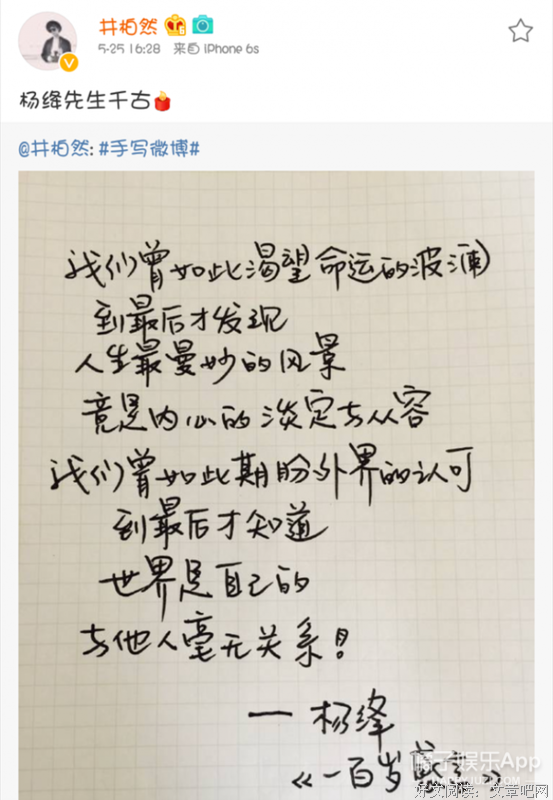 井柏然
5-25 16:28 来自 iPhone 6s
杨绛先生千古
@井柏然: #手写微博#
我们曾如此渴望命运的波澜
到最后才发现
人生最曼妙的风景
竟是内心的淡定与从容
我们曾如此期盼外界的认可
到最后才知道
世界是自己的
与他人毫无关系!
— 杨绛
《一百岁感言》
橘子娱乐App
好文阅读：文章吧网